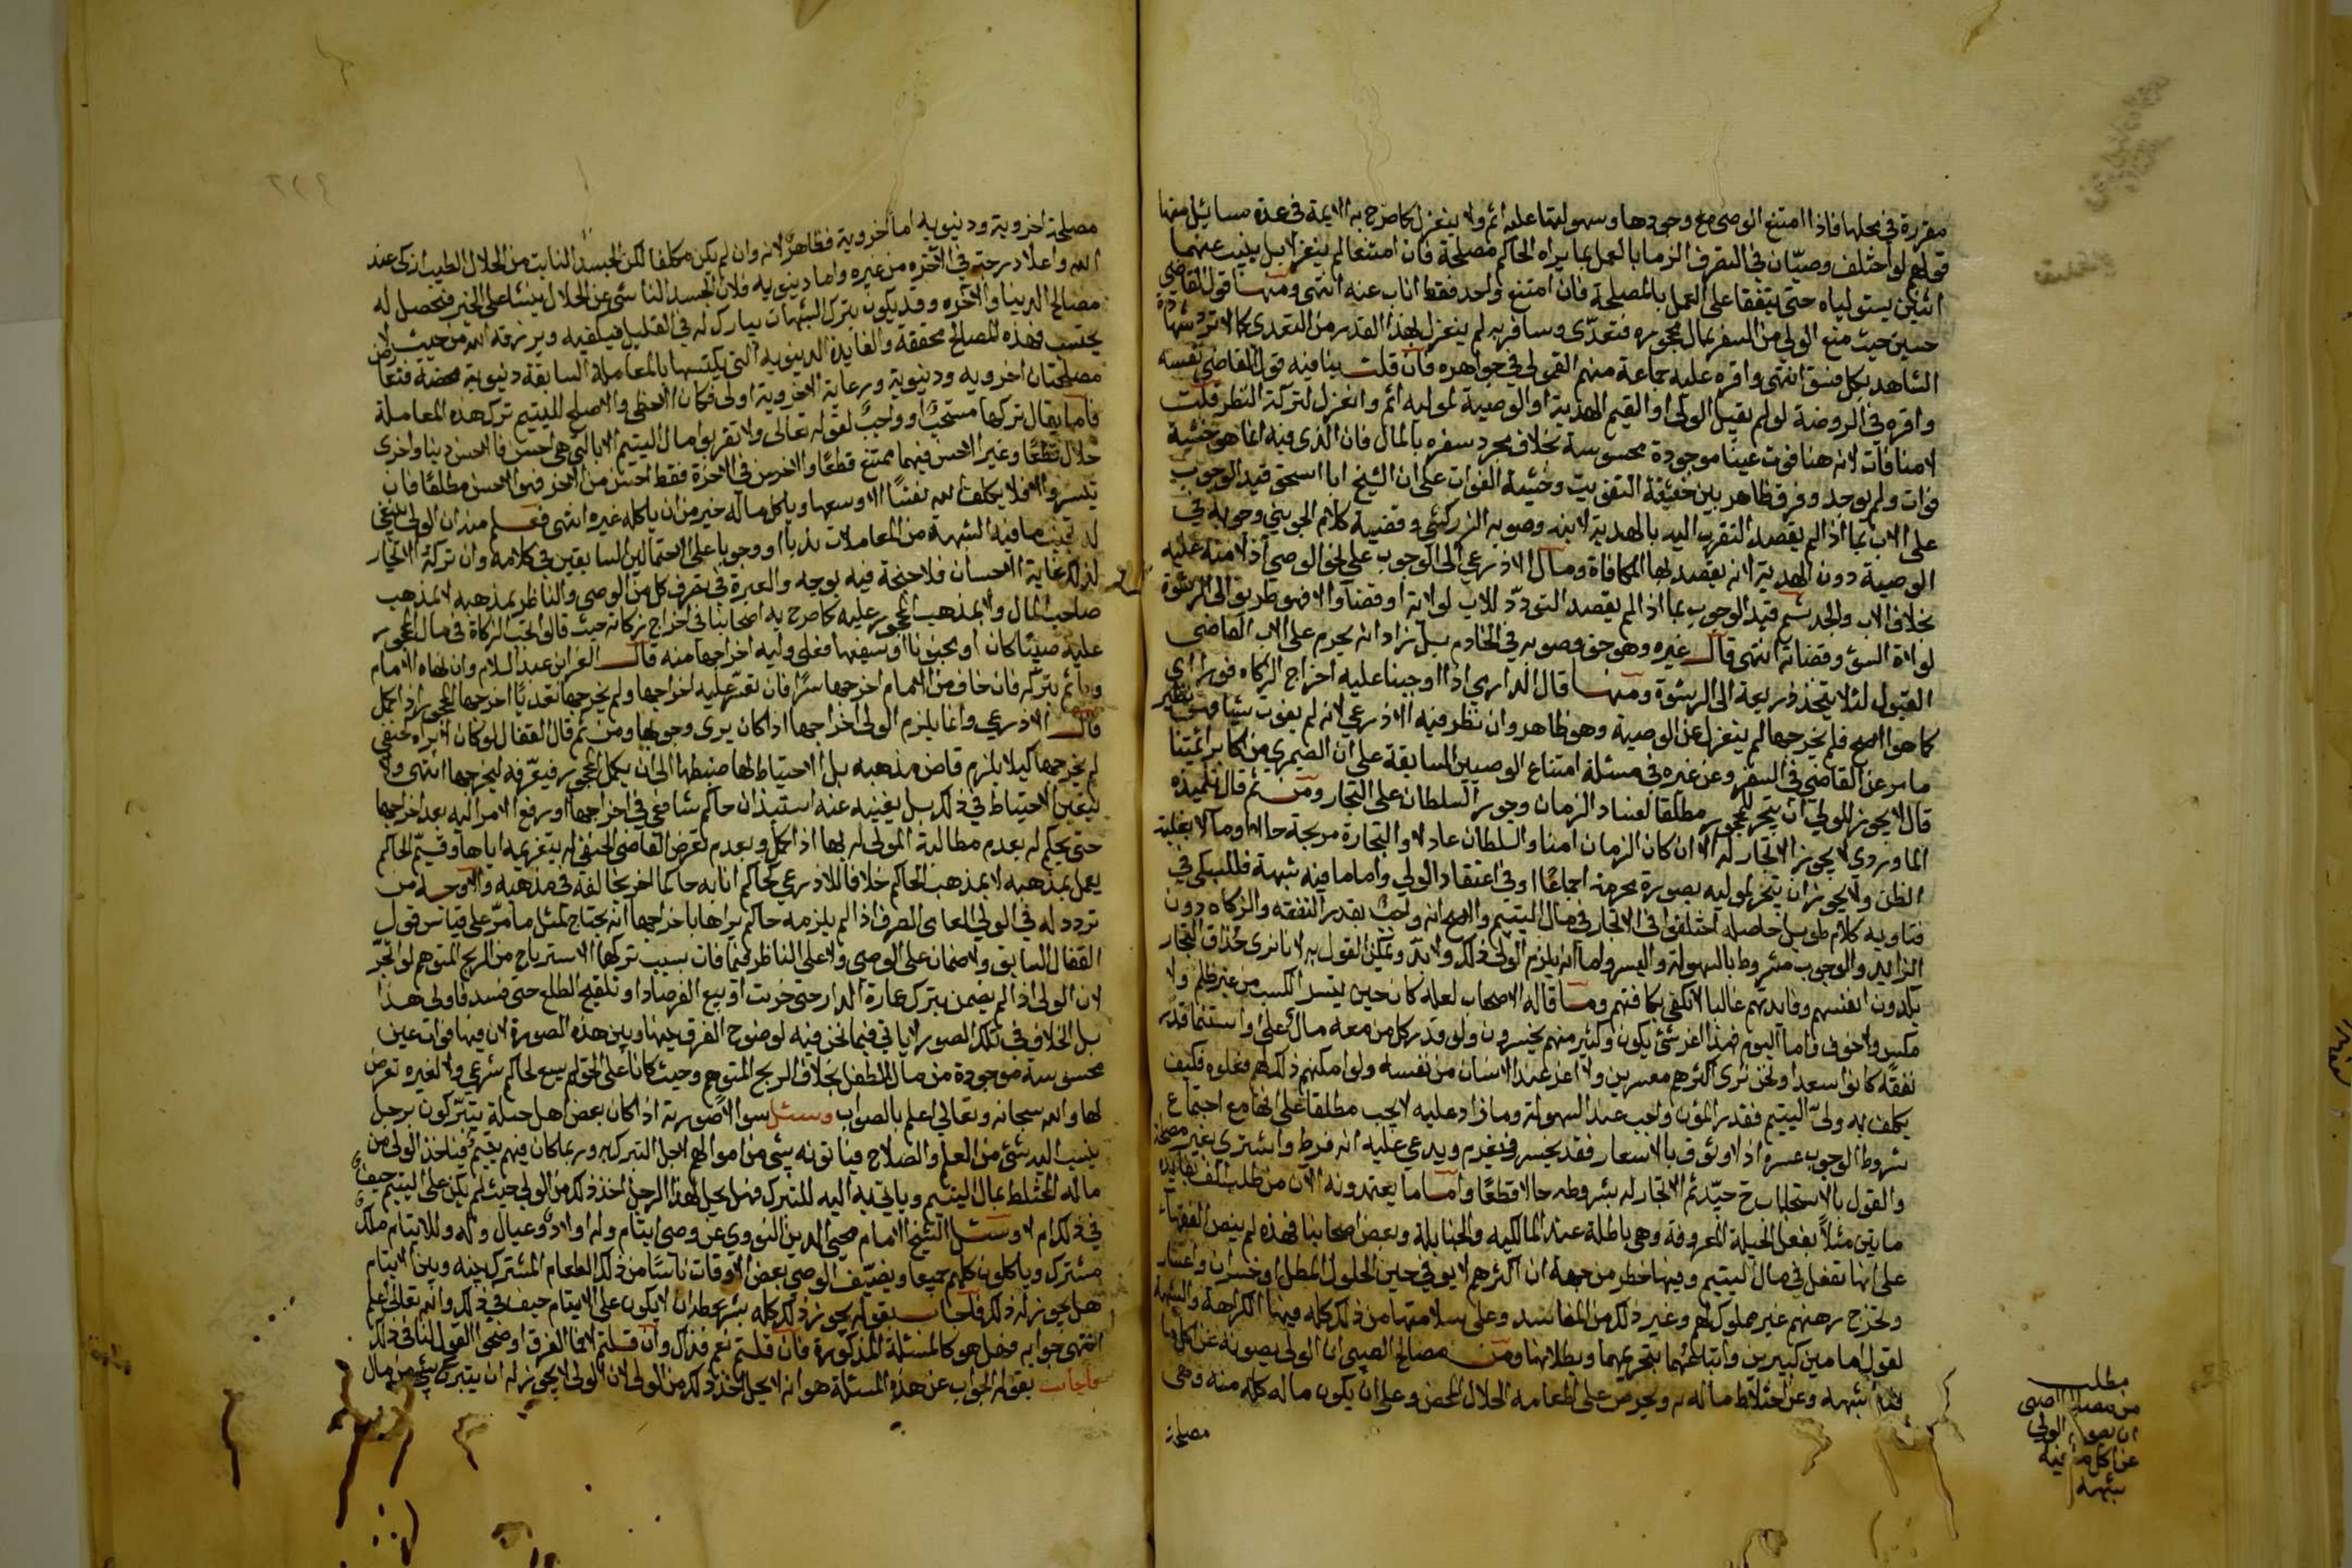 مقررة في محلها فاذا امتنع الوصي مع وجودها وسهولتها عليه اثم ولا ينعزل كما صرح به الايمة في عدة مسائل منها
قولهم لو اختلف وصيّان في التصرف الزما بالعمل بما يراه الحاكم مصلحة فان امتنعا لم ينعزلا بل ينيب عنهما
اثنين يستوليانه حتى يتفقا على العمل بالمصلحة فان امتنع واحد فقط اناب عنه انتهى ومنها قول القاضي
حسين حيث منع الولي من السفر بمال محجوره فتعدّى وسافر به لم ينعزل بهذا القدر من التعدي كما لا ترد شهادة
الشاهد بكل فسق انتهى واقره عليه جماعة منهم القمولي في جواهره فان قلت ينافيه قول القاضي نفسه
واقره في الروضة لو لم يقبل الولي او القيم الهدية او الوصية لموليه اثم وانعزل لتركه النظر قلت
لا منافات لانه هنا فوت عينا موجودة محسوسة بخلاف مجرد سفره بالمال فان الذي فيه انما هو خشية
فوات ولم يوجد وفرق ظاهر بين حقيقة التفويت وخشية الفوات على ان الشيخ ابا اسحق قيد الوجوب
على الاب بما اذا لم يقصد التقرب اليه بالهدية لابنه وصوبه الزركشي وقضية كلام الجويني وجوبه في
الوصية دون الهدية لانه يقصد بها المكافاة ومال الاذرعي الى الوجوب على نحو الوصي اذ لا منة عليه
بخلاف الاب والجد ثم قيد الوجوب بما اذا لم يقصد التودّد للاب لولاته او قضاء والا فهو طريق الى الرشوة
لولاة السؤ وقضاته انتهى قال غيره وهو حق وصوبه في الخادم بل زاد انه يحرم على الاب القاضي
القبول لئلا يتخذ ذريعة الى الرشوة ومنها قال الدارمي اذا اوجبنا عليه اخراج الزكاه فورا اي
كما هو الاصح فلم يخرجها لم ينعزل عن الوصية وهو ظاهر وان نظر فيه الاذرعي لانه لم يفوت شيا فهو نظير
ما مر عن القاضي في السفر وعن غيره في مسئلة امتناع الوصيين السابقة على ان الصيمري من اكابر ائمتنا
قال لا يجوز للولي ان يتجر للمحجور مطلقا لفساد الزمان وجور السلطان على التجار ومن ثم قال تلميذه
الماوردي لا يجوز الاتجار له الا ان كان الزمان امنا والسلطان عادلا والتجارة مربحة حالا وما لا بغلبة
الظن ولا يجوز ان يتجر لموليه بصورة محرمة اجماعا او في اعتقاد الولي واما ما فيه شبهة فللسبكي في
فتاويه كلام طويل حاصله اختلفوا في الاتجار في مال اليتيم والاصح انه واجب بقدر النفقه والزكاه دون
الزايد والوجوب مشروط بالسهولة واليسر واما انه يلزم الولي ذلك ولا بد ويمكن القول به لانا نرى حذاق التجار
يكدون انفسهم وفائدتهم غالبا لا تكفي بكفافتهم وما قاله الاصحاب لعله كان حين تيسر الكسب من غير ظلم ولا
مكس ولا خوف واما اليوم فهذا اعز شئ يكون وكثير منهم يخسرون ولو قدر كل من معه مال على واستنما قدر
نفقة كانوا سعدا ونحن نرى اكثرهم معسرين ولا اعز عند الانسان من نفسه ولو امكنهم ذلك لهم فعلوه فكيف
يكلف به ولى اليتيم فقدر المؤن واجب عند السهولة وما زاد عليه لا يجب مطلقا على انها مع اجتماع
شروط الوجوب عسرة اذ لا وثوق بالاسعار فقد يخسر فيغرم ويدعي عليه انه فرط واشترى بغير مصلحة
والقول بالاستحباب ح جيّد ثم الاتجار له بشروطه حالا قطعا واما ما يعتمدونه الان من طلب الف بفائدة
مايتين مثلا بفعل الحيلة المعروفة وهي باطلة عند المالكيه والحنابلة وبعض اصحابنا فهذه لم ينص الفقهاء
على انها تفعل في مال اليتيم وفيها خطر من جهة ان اكثرهم لا يوفي حين الحلول المطل او خسران واعسار
وتخرج رهنهم غير مملوك لهم وغير ذلك من المفاسد وعلى سلامتها من ذلك كله فيها الكراهة والشبهة
لقول امامين كبيرين واتباعهما بتحريمها وبطلانها ومن مصالح الصبي ان الولي يصونه عن اكل ما
فيه شبهه وعن اختلاط ماله به ويحرص على اطعامه الحلال المحض وعلى ان يكون ماله كله منه وهي
مصلحة
مطلب
من مصالح الصبي
ان يصونه الولي
عن اكل ما فيه
شبهه
٢٢٩
مصلحة اخروية ودنيويه اما اخروية فظاهر لانه وان لم يكن مكلفا لكن الجسد النابت من الحلال الطيب ازكى عند
الله واعلا درجة في الاخره من غيره واما دنيويه فلان الجسد الناشئ عن الحلال ينشا على الخير فتحصل له
مصالح الدينا والاخره وقد يكون بترك الشبهات يبارك له في القليل فيكفيه ويرزقه الله من حيث لا
يحتسب فهذه المصالح محققة والفايدة الدينويه التي يكتسبها بالمعاملة السابقة دنيوية محضة فتعارض
مصلحتان اخرويه ودنيوية ورعاية الاخروية اولى فكان الاحظ والاصلح لليتيم ترك هذه المعاملة
فاما يقال تركها مستحبا او واجبا لقوله تعالى ولا تقربوا مال اليتيم الا بالتي هي احسن فالاحسن دينا واخرى
حلال قطعا وغير الاحسن فيهما ممتنع قطعا والاخر من في الاخرة فقط احسن من الاخر فهو الاحسن مطلقا فان
تيسر والا فلا يكلف الله نفسا الا وسعها وياكل ماله خير من ان ياكله غيره انتهى فعلم منه ان الولي ينبغي
له تجنب ما فيه الشبهة من المعاملات ندبا او وجوبا على الاحتمالين السابقين في كلامه وان تركه الاتجار
لذلك غاية الاحسان فلا جنحة فيه بوجه والعبرة في تصرف كل من الوصي والناظر بمذهبه لا بمذهب
صاحب المال ولا بمذهب المحجور عليه كما صرح به اصحابنا في اخراج زكاته حيث قالوا تجب الزكاة في مال المحجور
عليه صبيا كان او مجنونا او سفيها فعلى وليه اخراجها منه قال العز ابن عبد السلام وان نهاه الامام
وياثم بتركه فان خاف من الامام اخرجها سرا فان تعذر عليه اخراجها ولم يخرجها تعديا اخرجها المحجور اذا كمل
قال الاذرعي وانما يلزم الولي اخراجها اذا كان يرى وجوبها ومن ثم قال القفال لو كان لا يراه كحنفي
لم يخرجها كيلا يلزم قاض مذهبه بل الاحتياط لها ضبطها الى ان يكمل المحجور فيعرّفه ليخرجها انتهى ولا
يتعين الاحتياط في ذلك بل يغنيه عنه استيذان حاكم شافعي في اخراجها او رفع الامر اليه بعد اخراجها
حتى يحكم له بعدم مطالبة المولى له بها اذا كمل وبعدم تعرض القاضي الحنفي له بتغريمه اياها وقيّم الحاكم
يعمل بمذهبه لا بمذهب الحاكم خلافا للاذرعي كحاكم انابه حاكما اخر يخالفه في مذهبه والاوجه من
تردد له في الولي العامى الصرف اذا لم يلزمه حاكم يراها باخراجها انه يحتاج لمثل ما مرّ على قياس قول
القفال السابق ولا ضمان على الوصي ولا على الناظر فيما فات بسبب تركها الاسترباح من الربح المتوهم لو اتجر
لان الولي اذا لم يضمن بترك عمارة الدار حتى خربت او بيع الفرصاد او تلقيح الطلع حتى فسد فاولى هذا
بل الخلاف في تلك الصور لا ياتي فيما نحن فيه لوضوح الفرق بينها وبين هذه الصورة لان فيها فوات عين
محسوسة موجودة من مال الطفل بخلاف الربح المتوهم وحيث كانا على الحق لم يسع لحاكم شرعي ولا لغيره تعرض
لها والله سبحانه وتعالى اعلم بالصواب وسئل سوالا صورته اذا كان بعض اهل حيلة يتبرّكون برجل
ينسب اليه شئ من العلم والصلاح فياتونه بشئ من اموالهم لاجل التبرك به وربما كان فيهم يتيم فياخذ الولي من
ماله المختلط بمال اليتيم وياتي به اليه للتبرك فهل يحل لهذا الرجل اخذ ذلك من الولي حيث لم يكن على اليتيم حيف
في ذلك ام لا وسئل الشيخ الامام محيي الدين النووي عن وصي ايتام وله اولاد وعيال وله وللايتام ملك
مشترك وياكلون كلهم جميعا ويضيّف الوصي بعض الاوقات ناسا من ذلك الطعام المشترك بينه وبين الايتام
هل يجوز له ذلك فاجاب بقوله يجوز ذلك كله بشرط ان لا يكون على الايتام حيف في ذلك والله تعالى اعلم
انتهى جوابه فهل هو كالمسئلة المذكورة فان قلتم نعم فذاك وان قلتم لا فما الفرق اوضحوا القول لنا في ذلك
فاجاب بقوله الجواب عن هذه المسئلة هو انه لا يحل اخذ ذلك من الولي لان الولي لا يجوز له ان يتبرع بشئ من مال